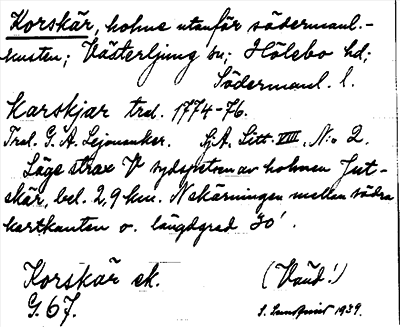 Korskär, holme utanför södermanl.-
kusten; Västerljung sn; Hölebo hd;
Södermanl. l.
Karskjar tral. 1774-76.
Tral. G. A. Lejonanker. SjA. Litt. VIII, N:o 2.
Läge strax V sydspetsen av holmen Jut-
skär, bel. 2,9 km. N skärningen mellan södra
kartkanten o. längdgrad 30'.
Korskär ek.
G. 67.
(Vänd!)
S. Sundqvist 1939.